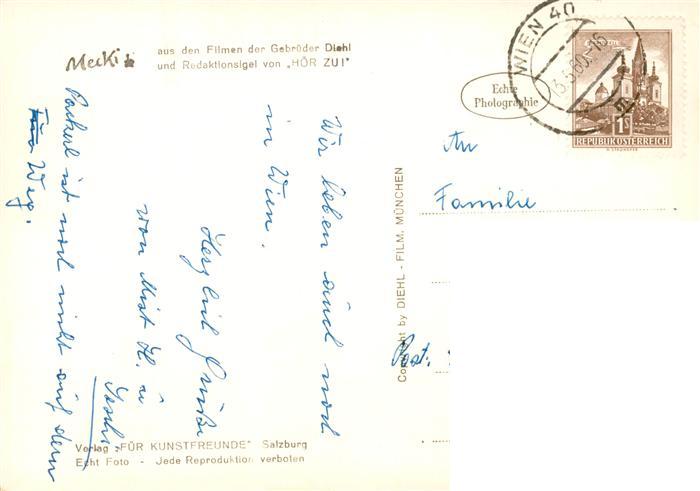 Mecki
aus den Filmen der Gebrüder Diehl
und Redaktionsigel von „HÖR ZU!"
Wir leben auch noch
in Wien.
Herzlich Grüße
von Mist H. u
Packerl ist noch nicht auf dem
Weg.
Verlag „FÜR KUNSTFREUNDE" Salzburg
Echt Foto - Jede Reproduktion verboten
Copyright by DIEHL - FILM, MÜNCHEN
Echte
Photographie
WIEN 40
1S
REPUBLIK ÖSTERREICH
An
Familie
Post: